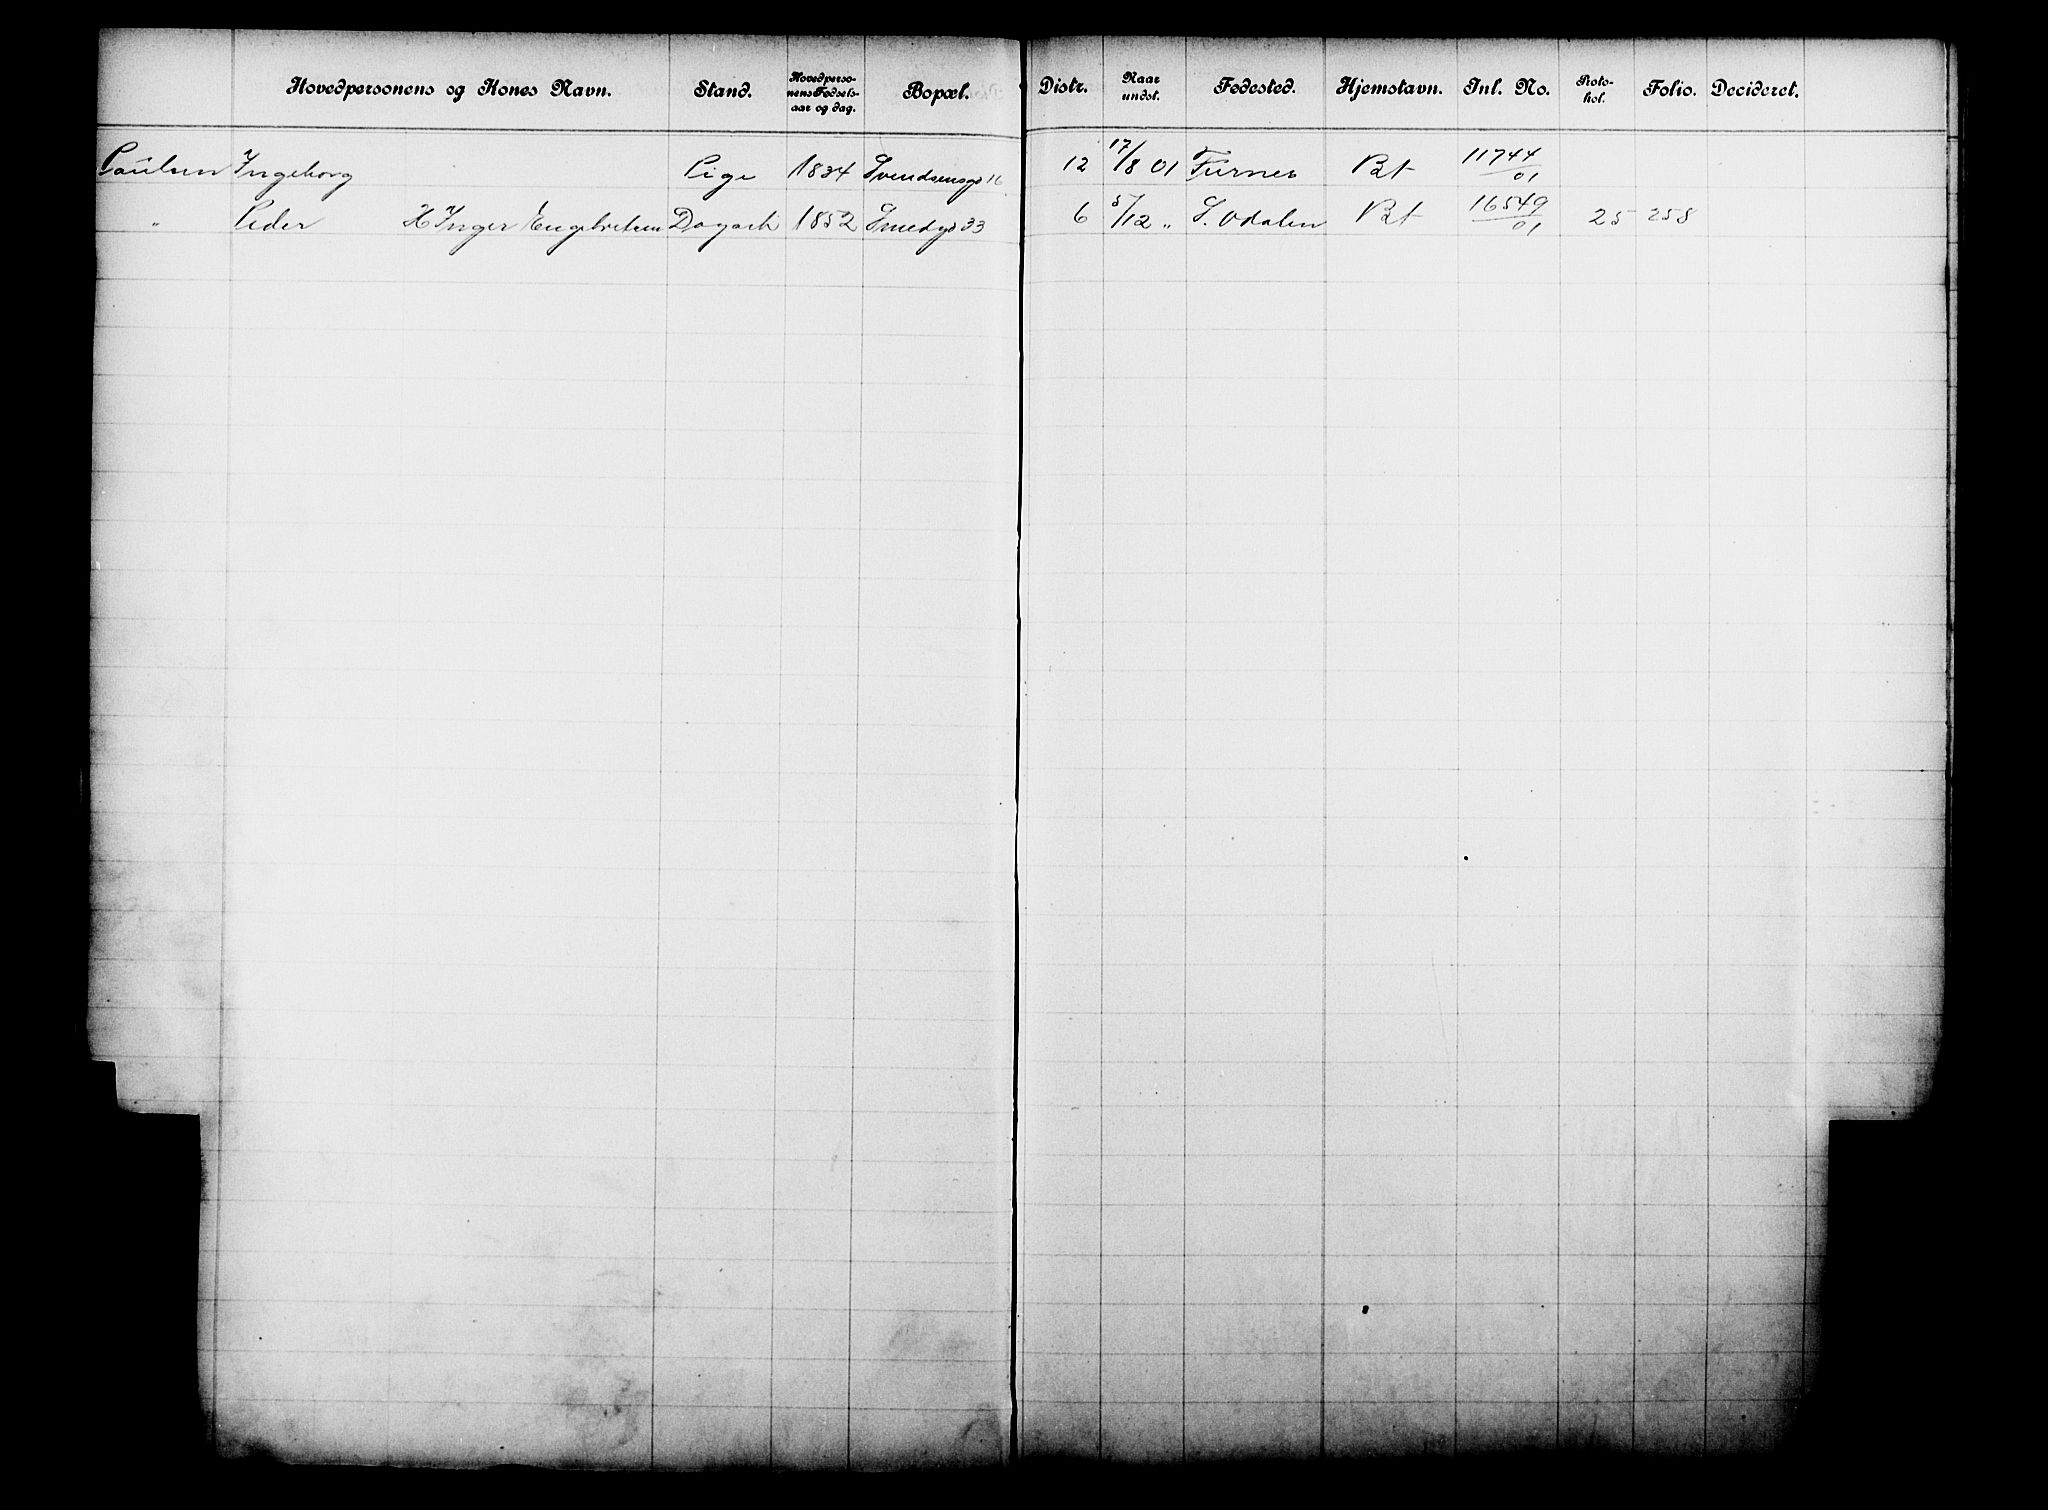 Hovedpersonens og Kones Navn. Stand. Hovedpersonens Fødselsaar og dag. Bopæl. Distr. Naar undst. Fødested. Hjemstavn. Inl. No. Protokol. Folio. Decideret.
Paulsen Ingeborg Pige 1834 Svendsensgd 16 12 17/8 01 Furnes Bt 11744/01
" Peder H Inger Engebretsen Dagarb 1852 Smedgd 33 6 5/12 " S. Odalen Bt 16549/01 25 258